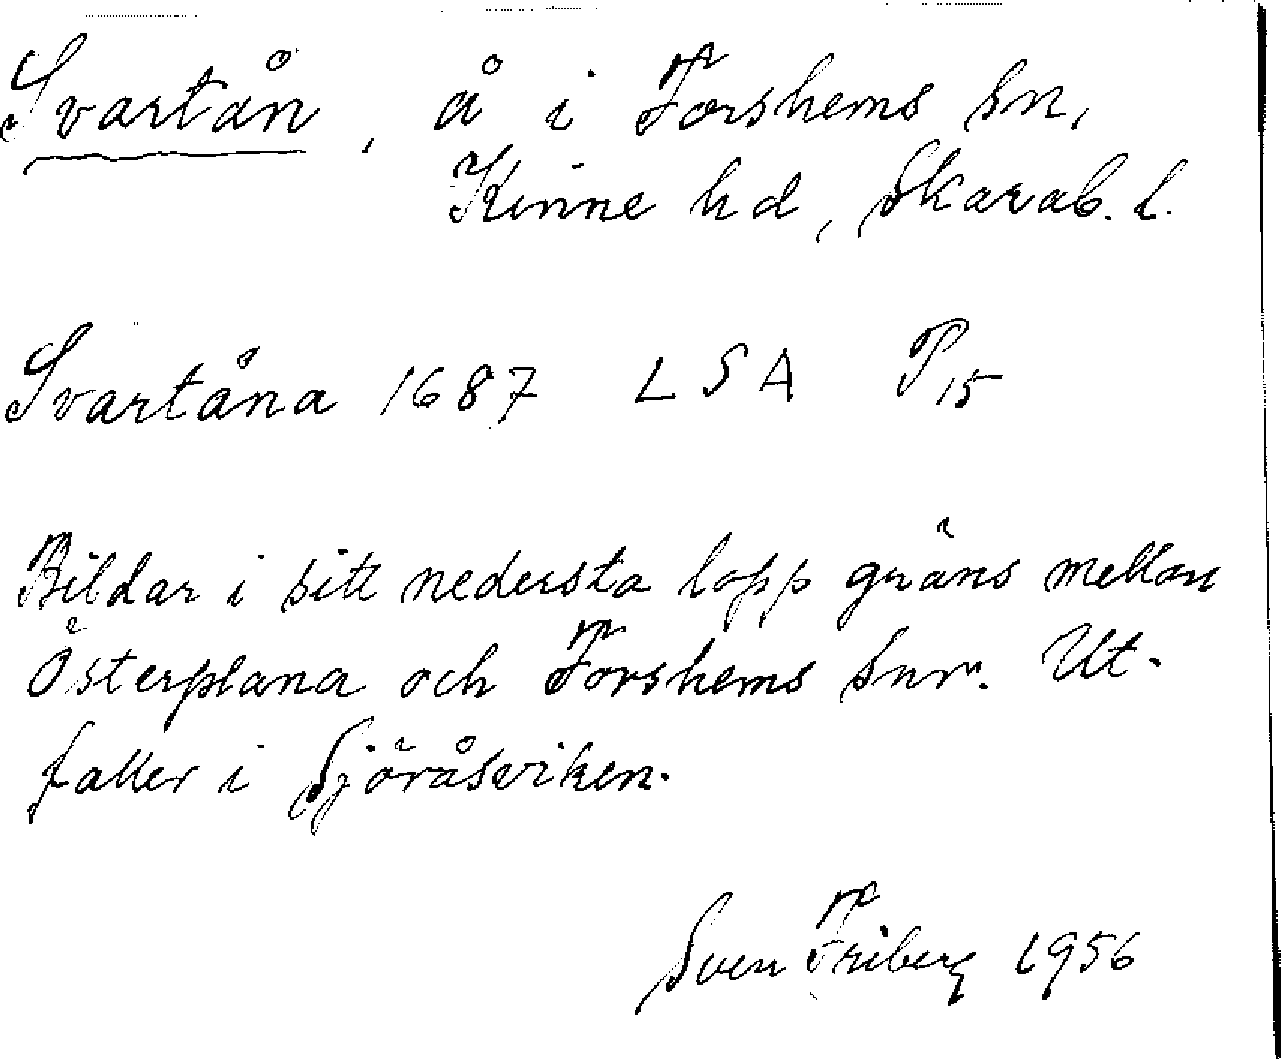 Svartån, å i Forshems sn,
Kinne hd, Skarab. l.
Svartåna 1687 LSA P15
Bildar i sitt nedersta lopp gräns mellan
Österplana och Forshems snr. Ut-
faller i Sjöråsviken.
Sven Friberg 1956